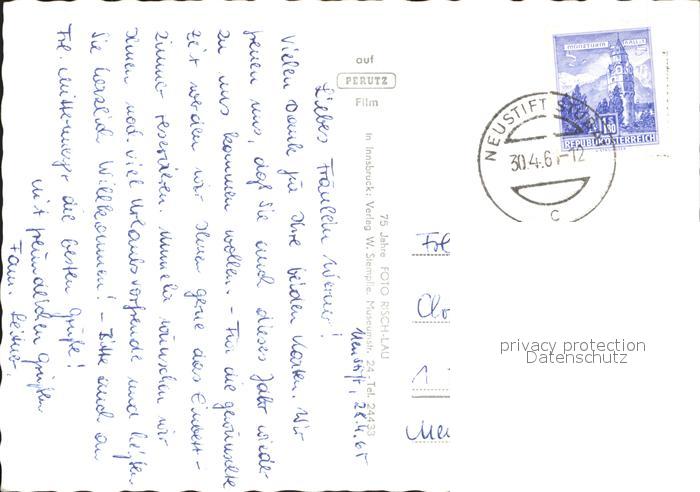 Neustift, 28.4.65
Liebes Fräulein Werner!
Vielen Dank für Ihre beiden Karten. Wir
freuen uns, daß Sie auch dieses Jahr wieder
zu uns kommen wollen. - Für die gewünschte
Zeit werden wir Ihnen gerne das Einbett-
zimmer reservieren. Nun wünschen wir
Ihnen noch viel Urlaubsvorfreude und heißen
Sie herzlich Willkommen! - Bitte auch an
Frl. Mittermeyer die besten Grüße!
mit freundlichen Grüßen
Fam.
75 Jahre FOTO RISCH-LAU
In Innsbruck: Verlag W. Stempfle, Museumstr. 24, Tel. 24433
auf
PERUTZ
Film
MÜNZTURM HALL i. T.
1.80
REPUBLIK ÖSTERREICH
NEUSTIFT STUB
30.4.6 -12
c
Frl
1
privacy protection
Datenschutz